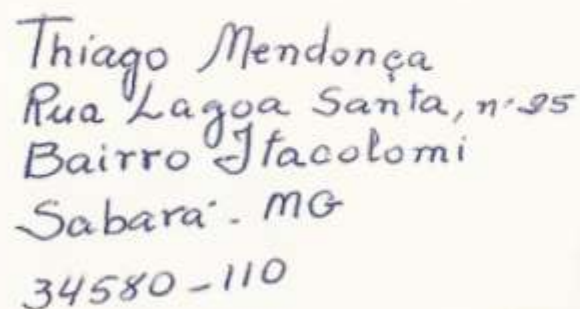 Thiago Mendonça
Rua Lagoa Santa, nº 25
Bairro Itacolomi
Sabará - MG
34580-110